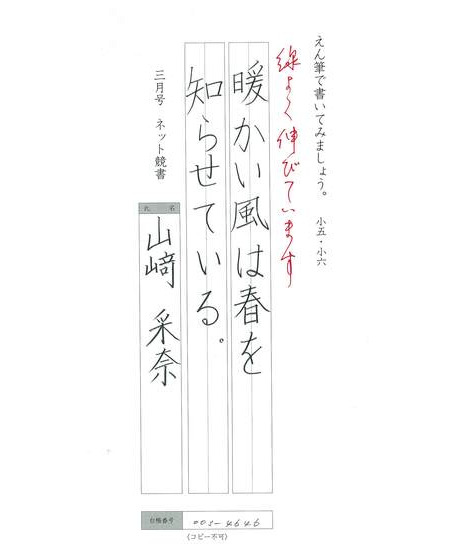 えん筆で書いてみましょう。 小五・小六
線よく伸びています
暖かい風は春を
知らせている。
三月号 ネット競書
氏 名
山﨑 采奈
台帳番号
003-4646
〈コピー不可〉